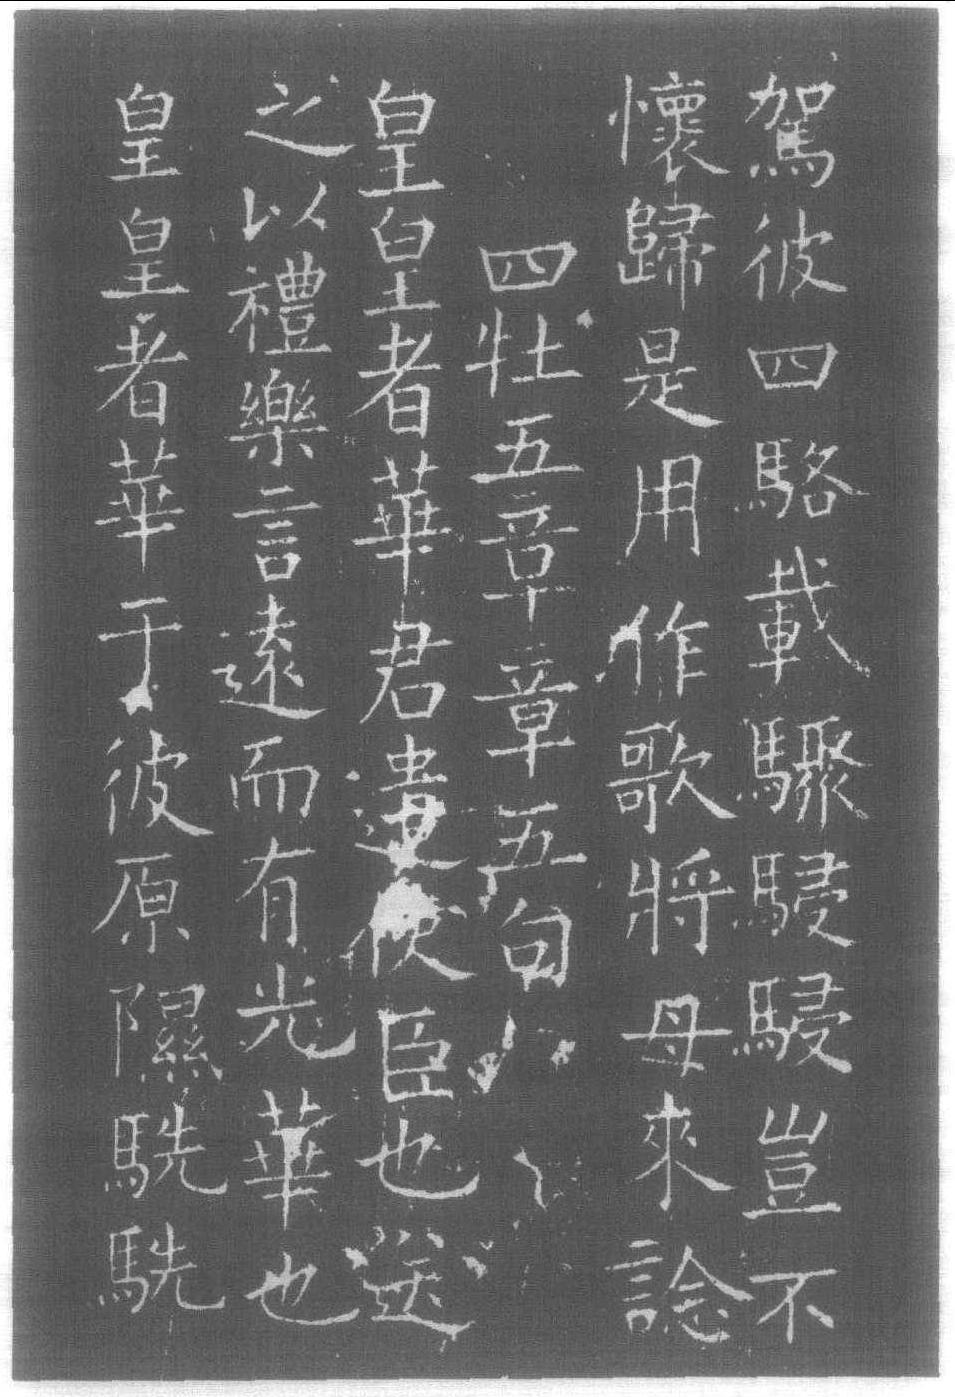 駕彼四駱載驟駸駸豈不
懷歸是用作歌將母來諗
四牡五章章五句
皇皇者華君遣使臣也送
之以禮樂言遠而有光華也
皇皇者華于彼原隰駪駪